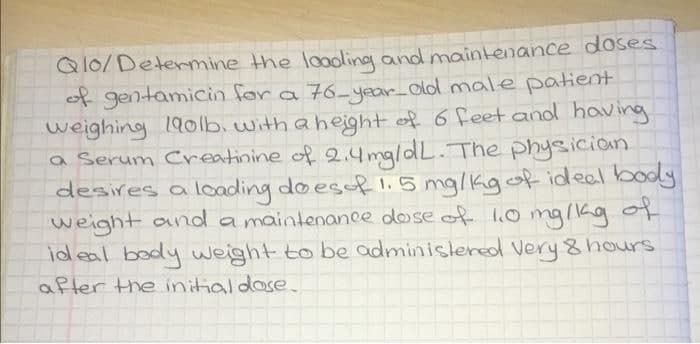 Q10/Determine the loading and maintenance doses
of gentamicin for a 76-year-old male patient
weighing 190lb. with a height of 6 feet and having
a Serum Creatinine of 2.4mg/dL. The physician
desires a loading does of 1.5 mg/kg of ideal body
weight and a maintenance dose of 1.0 mg/kg of
ideal body weight to be administered Very 8 hours
after the initial dose.